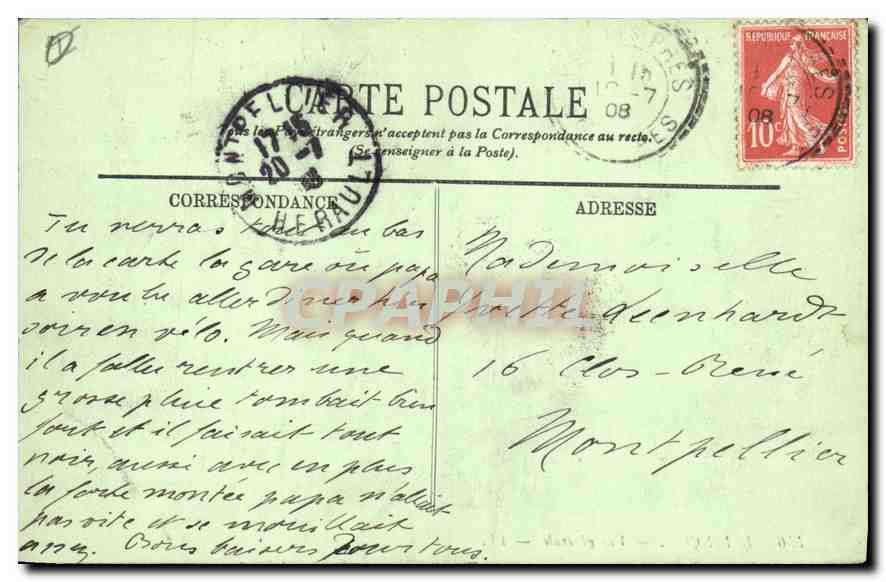 CARTE POSTALE
Tous les Pays étrangers n'acceptent pas la Correspondance au recto.
(Se renseigner à la Poste).
CORRESPONDANCE
Tu verras tout en bas
de la carte la gare où papa
a voulu aller dîner hier
soir en vélo. Mais quand
il a fallu rentrer une
grosse pluie tombait bien
fort et il faisait tout
noir, aussi avec en plus
la forte montée papa n'allait
pas vite et se mouillait
assez. Bons baisers pour tous.
ADRESSE
Mademoiselle
Leenhardt
16 Clos-René
Montpellier
RÉPUBLIQUE FRANÇAISE
10c
POSTES
08
MONTPELLIER
17 15
20 -7
08
HERAULT
08
GRAPHIL